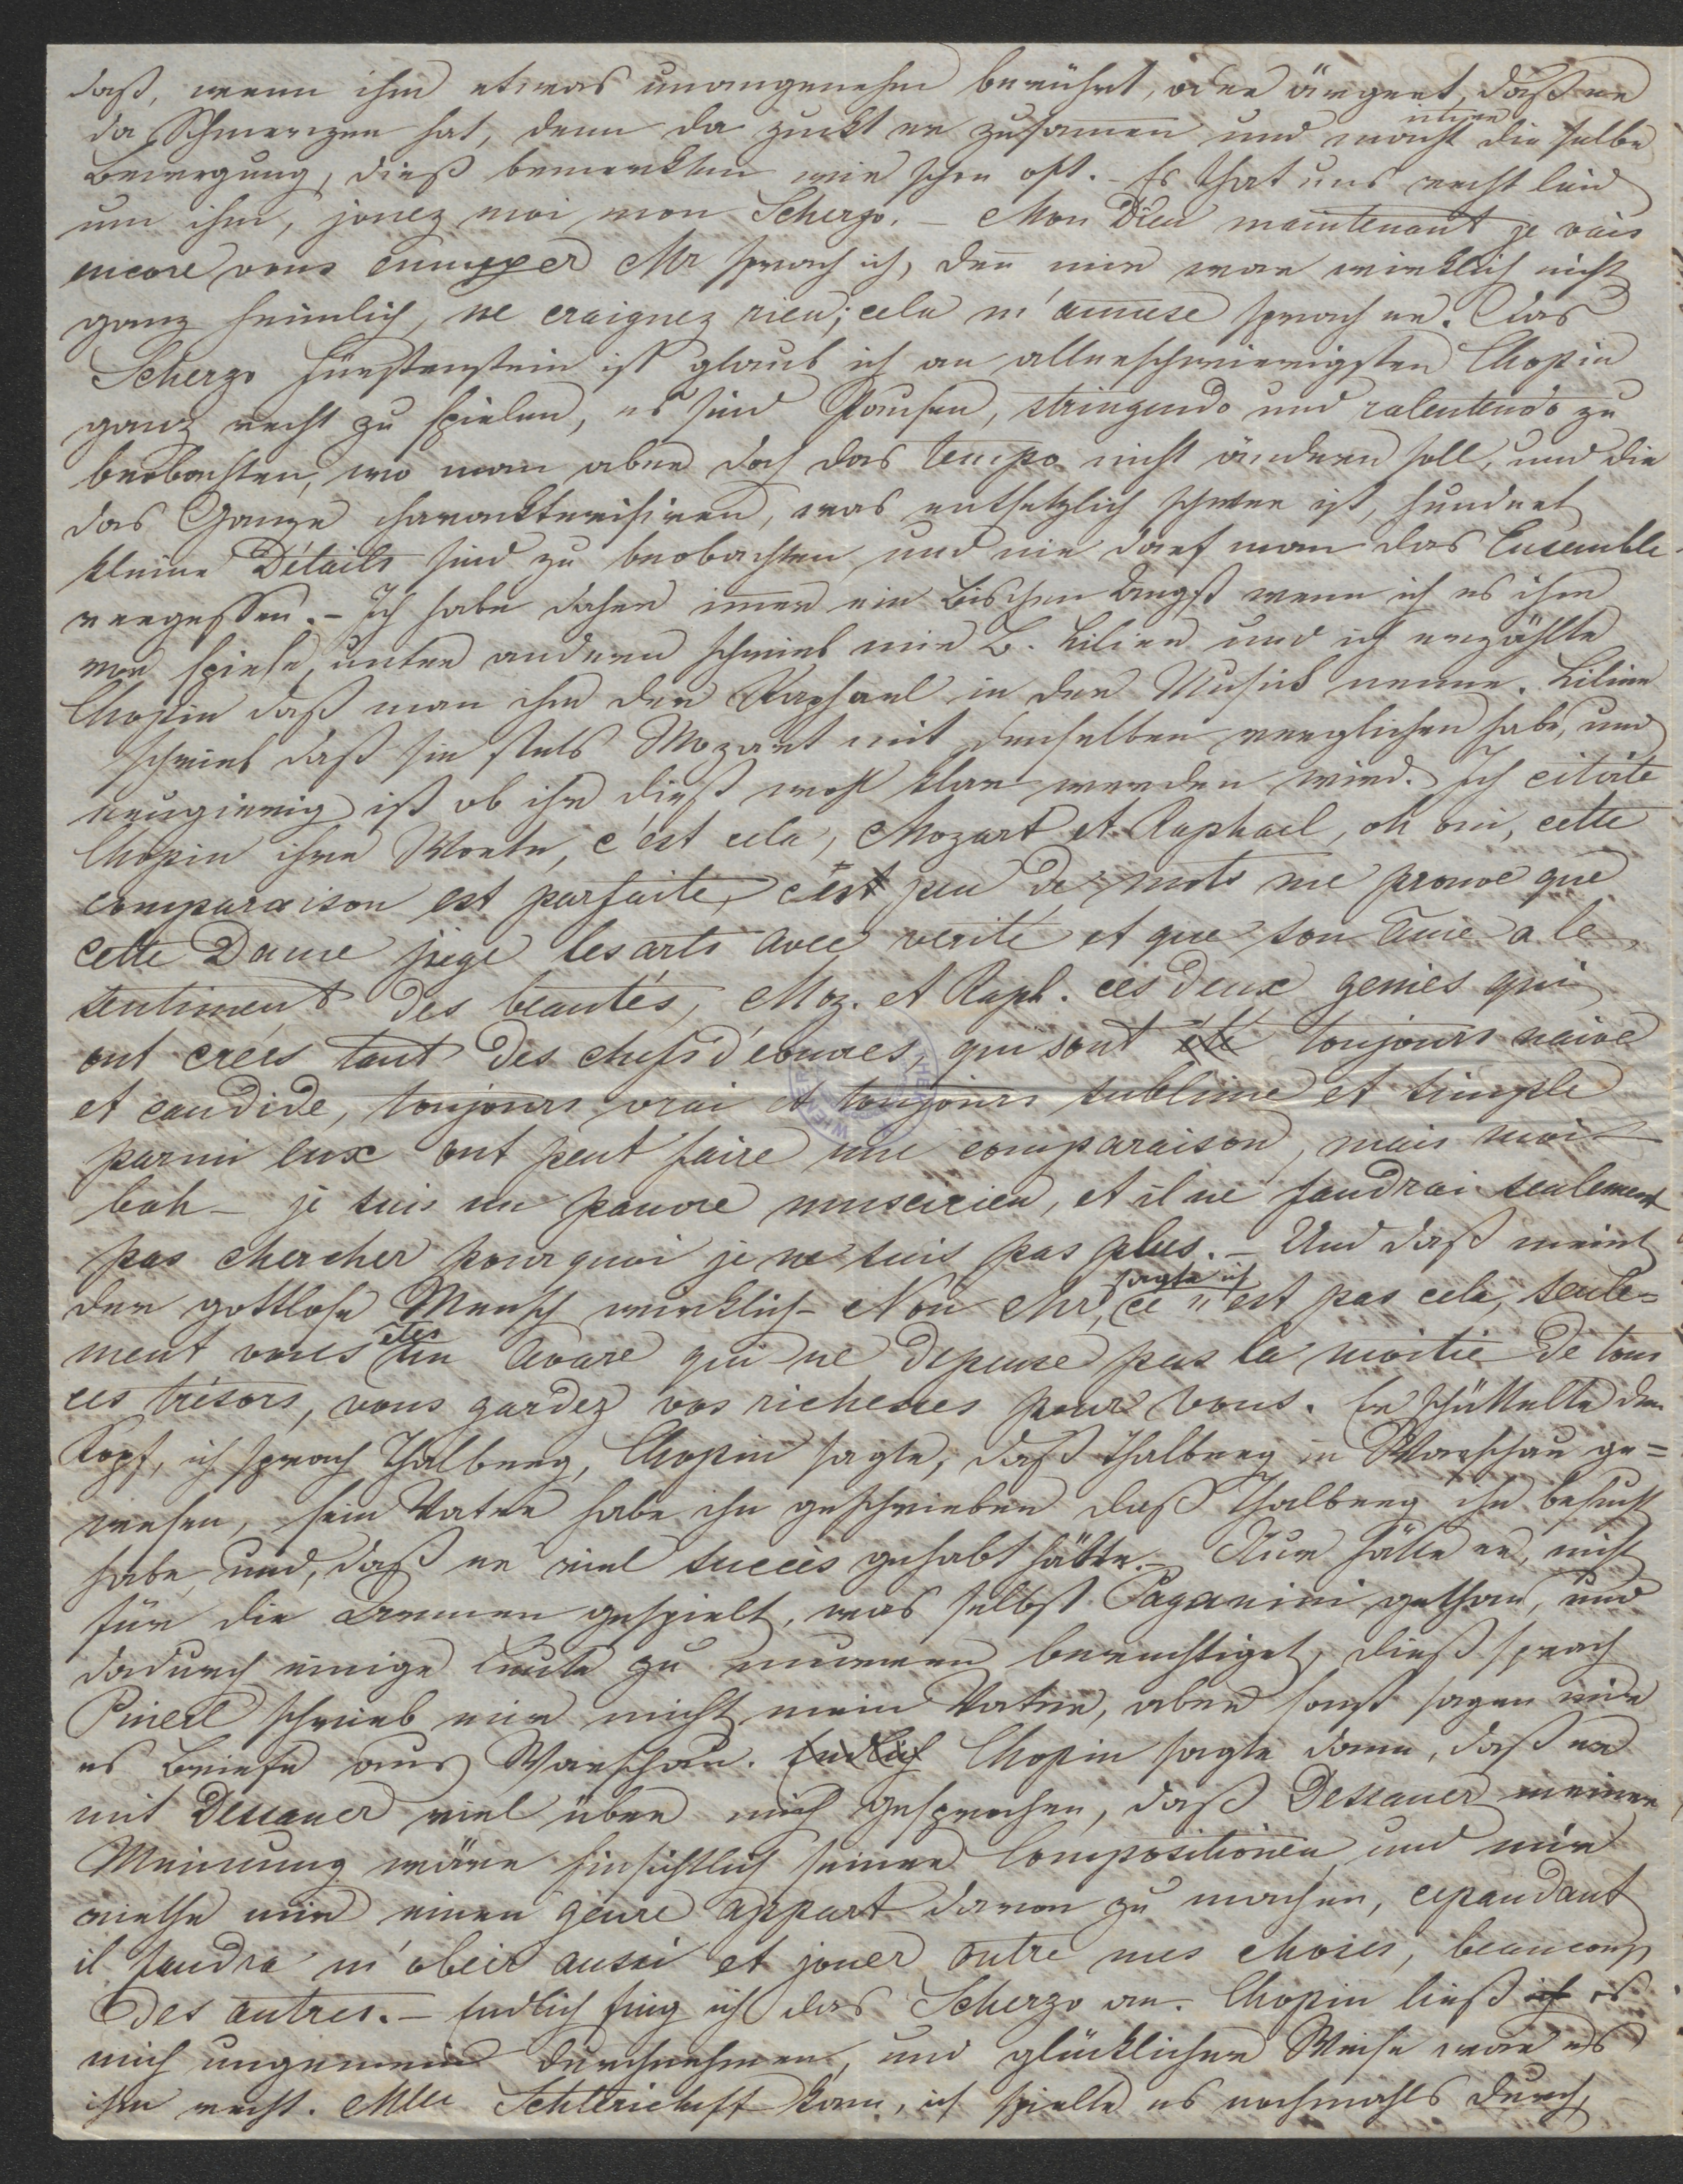 daß, wenn ihm etwas unangenehm berührt, oder ärgert, daß er
da Schmerzen hat, denn da zuckt er zusamen und macht immer die selbe
Bewegung, dieß bemerkten wir schon oft. – Es that uns recht leid
um ihm, jouez moi mon Scherzo. – Mon Dieu maintenant je vais
encore vous ennuyer Mr sprach ich, den mir war wirklich nicht
ganz heimlich, ne craignez rien; cela m'amuse sprach er. Das
Scherzo Fürstenstein ist glaub ich am allerschwierigsten Chopin
ganz recht zu spielen, es sind Pausen, stringendo und ralentendo zu
beobachten, wo man aber doch das tempo nicht ändern soll, und die
das Ganze charackterisiren, was entsetzlich schwer ist, hundert
kleine Détails sind zu beobachten und nie darf man das Ensemble
vergessen. – Ich habe daher imer ein Bischen Angst wenn ich es ihm
vor spiele, unter andern schrieb mir B. Lilien und ich erzählte
Chopin daß man ihm den Raphael in der Musick nenne. Liline
schrieb daß sie stets Mozart mit demselben verglichen habe, und
neugierig ist ob ihr dieß wohl klar werden wird. Ich citirte
Chopin ihre Worte, c'est cela, Mozart et Raphael, oh oui, cette
comparaison est parfaite, c'est peu de mots me prouve que
cette Dame juge les arts avec verité et que son âme a le
sentiment des beautés, Moz. et Raph. ces deux genies qui
ont creés tant des chefs d'eouvres, qui sont été toujours naive
et candide, toujours vrai et toujours sublime et simple
parmi eux ont peut faire une comparaison, mais moi –
bah – je suis un pauvre museicien, et il ne faudrai seulement
pas chercher pourquoi je ne suis pas plus. – Und daß meint
der gottlose Mensch wirklich – Non Mr, sagte ich ce n'est pas cela, seule=
ment vous étes un Avare qui ne depense pas la moitie de tous
ces trésors, vous gardez vos richesses pour vous. Er schüttelte den
Kopf, ich sprach Thalberg, Chopin sagte, daß Thalberg in Warschau ge=
wesen, sein Vater habe ihn geschrieben daß Thalberg ihn besucht
habe, und, daß er viel succès gehabt hätte. – Nur hätte er, nicht
für die Armen gespielt, was selbst Paganini gethan, und
dadurch einige Leute zu murren berechtiget, dieß sprach
schrieb mir nicht mein Vater, aber sonst sagen mir
es Briefe aus Warschau. Endlich Chopin sagte dann, daß er
mit Dessauer viel über mich gesprochen, daß Dessauer meiner
Meinung wäre hinsichtlich seiner Compositionen und mir
riethe mir einen genre appart davon zu machen, cepandant
il faudra m'obeir aussi et jouer outre mes choses, beaucoup
des autres. – Endlich fing ich das Scherzo an. Chopin ließ ich es
mich ungemein durchnehmen, und glücklicher Weise war es
ihm recht. Mlle kam, ich spielte es nochmahls durch,